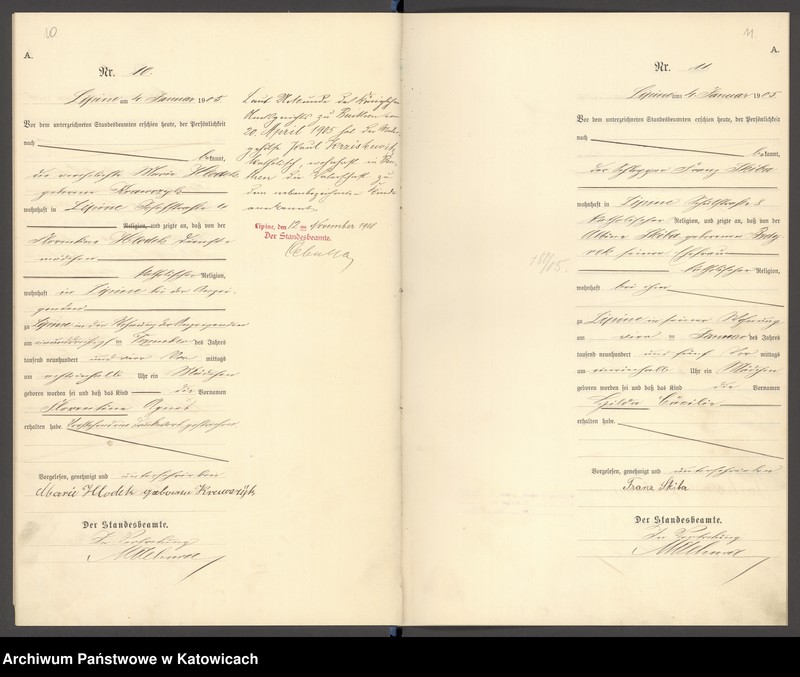 10
A.
Nr. 10.
Lipine am 4. Januar 1905
Vor dem unterzeichneten Standesbeamten erschien heute, der Persönlichkeit
nach
bekannt,
die verehelichte Maria Hlodek
geborene Krawczyk
wohnhaft in Lipine
Religion, und zeigte an, daß von der
Florentine Hlodek Dienst-
mädchen
katholischer Religion,
wohnhaft in Lipine bei der Anzei-
genden
zu Lipine in der Wohnung der Anzeigenden
am einunddreißigsten Dezember des Jahres
tausend neunhundert und vier Vor mittags
um Uhr ein Mädchen
geboren worden sei und daß das Kind die Vornamen
Florentine Agnes
erhalten habe. Vorstehend gestrichen
Vorgelesen, genehmigt und unterschrieben
Marie Hlodek geborene Krawczyk
Der Standesbeamte.
In Vertretung
Laut Urkunde des Königlichen
Amtsgerichts zu Beuthen vom
20. April 1905 hat der
gehilfe Paul
katholisch, wohnhaft in Beu-
then die Vaterschaft zu
dem nebenbezeichneten Kinde
anerkannt.
Lipine, den 12 ten November 19
Der Standesbeamte.
Cebulla
11
A.
Nr. 11
Lipine am 4. Januar 1905
Vor dem unterzeichneten Standesbeamten erschien heute, der Persönlichkeit
nach
bekannt,
der Schlepper Franz Skiba
wohnhaft in Lipine Schulstraße 8
katholischer Religion, und zeigte an, daß von der
Albine Skiba geborene
seiner Ehefrau
katholischer Religion,
wohnhaft bei ihm
zu Lipine in seiner Wohnung
am vier ten Januar des Jahres
tausend neunhundert und fünf Vor mittags
um Uhr ein Mädchen
geboren worden sei und daß das Kind die Vornamen
Hilda Cäcilie
erhalten habe.
Vorgelesen, genehmigt und unterschrieben
Franz Skiba
Der Standesbeamte.
In Vertretung
Archiwum Państwowe w Katowicach